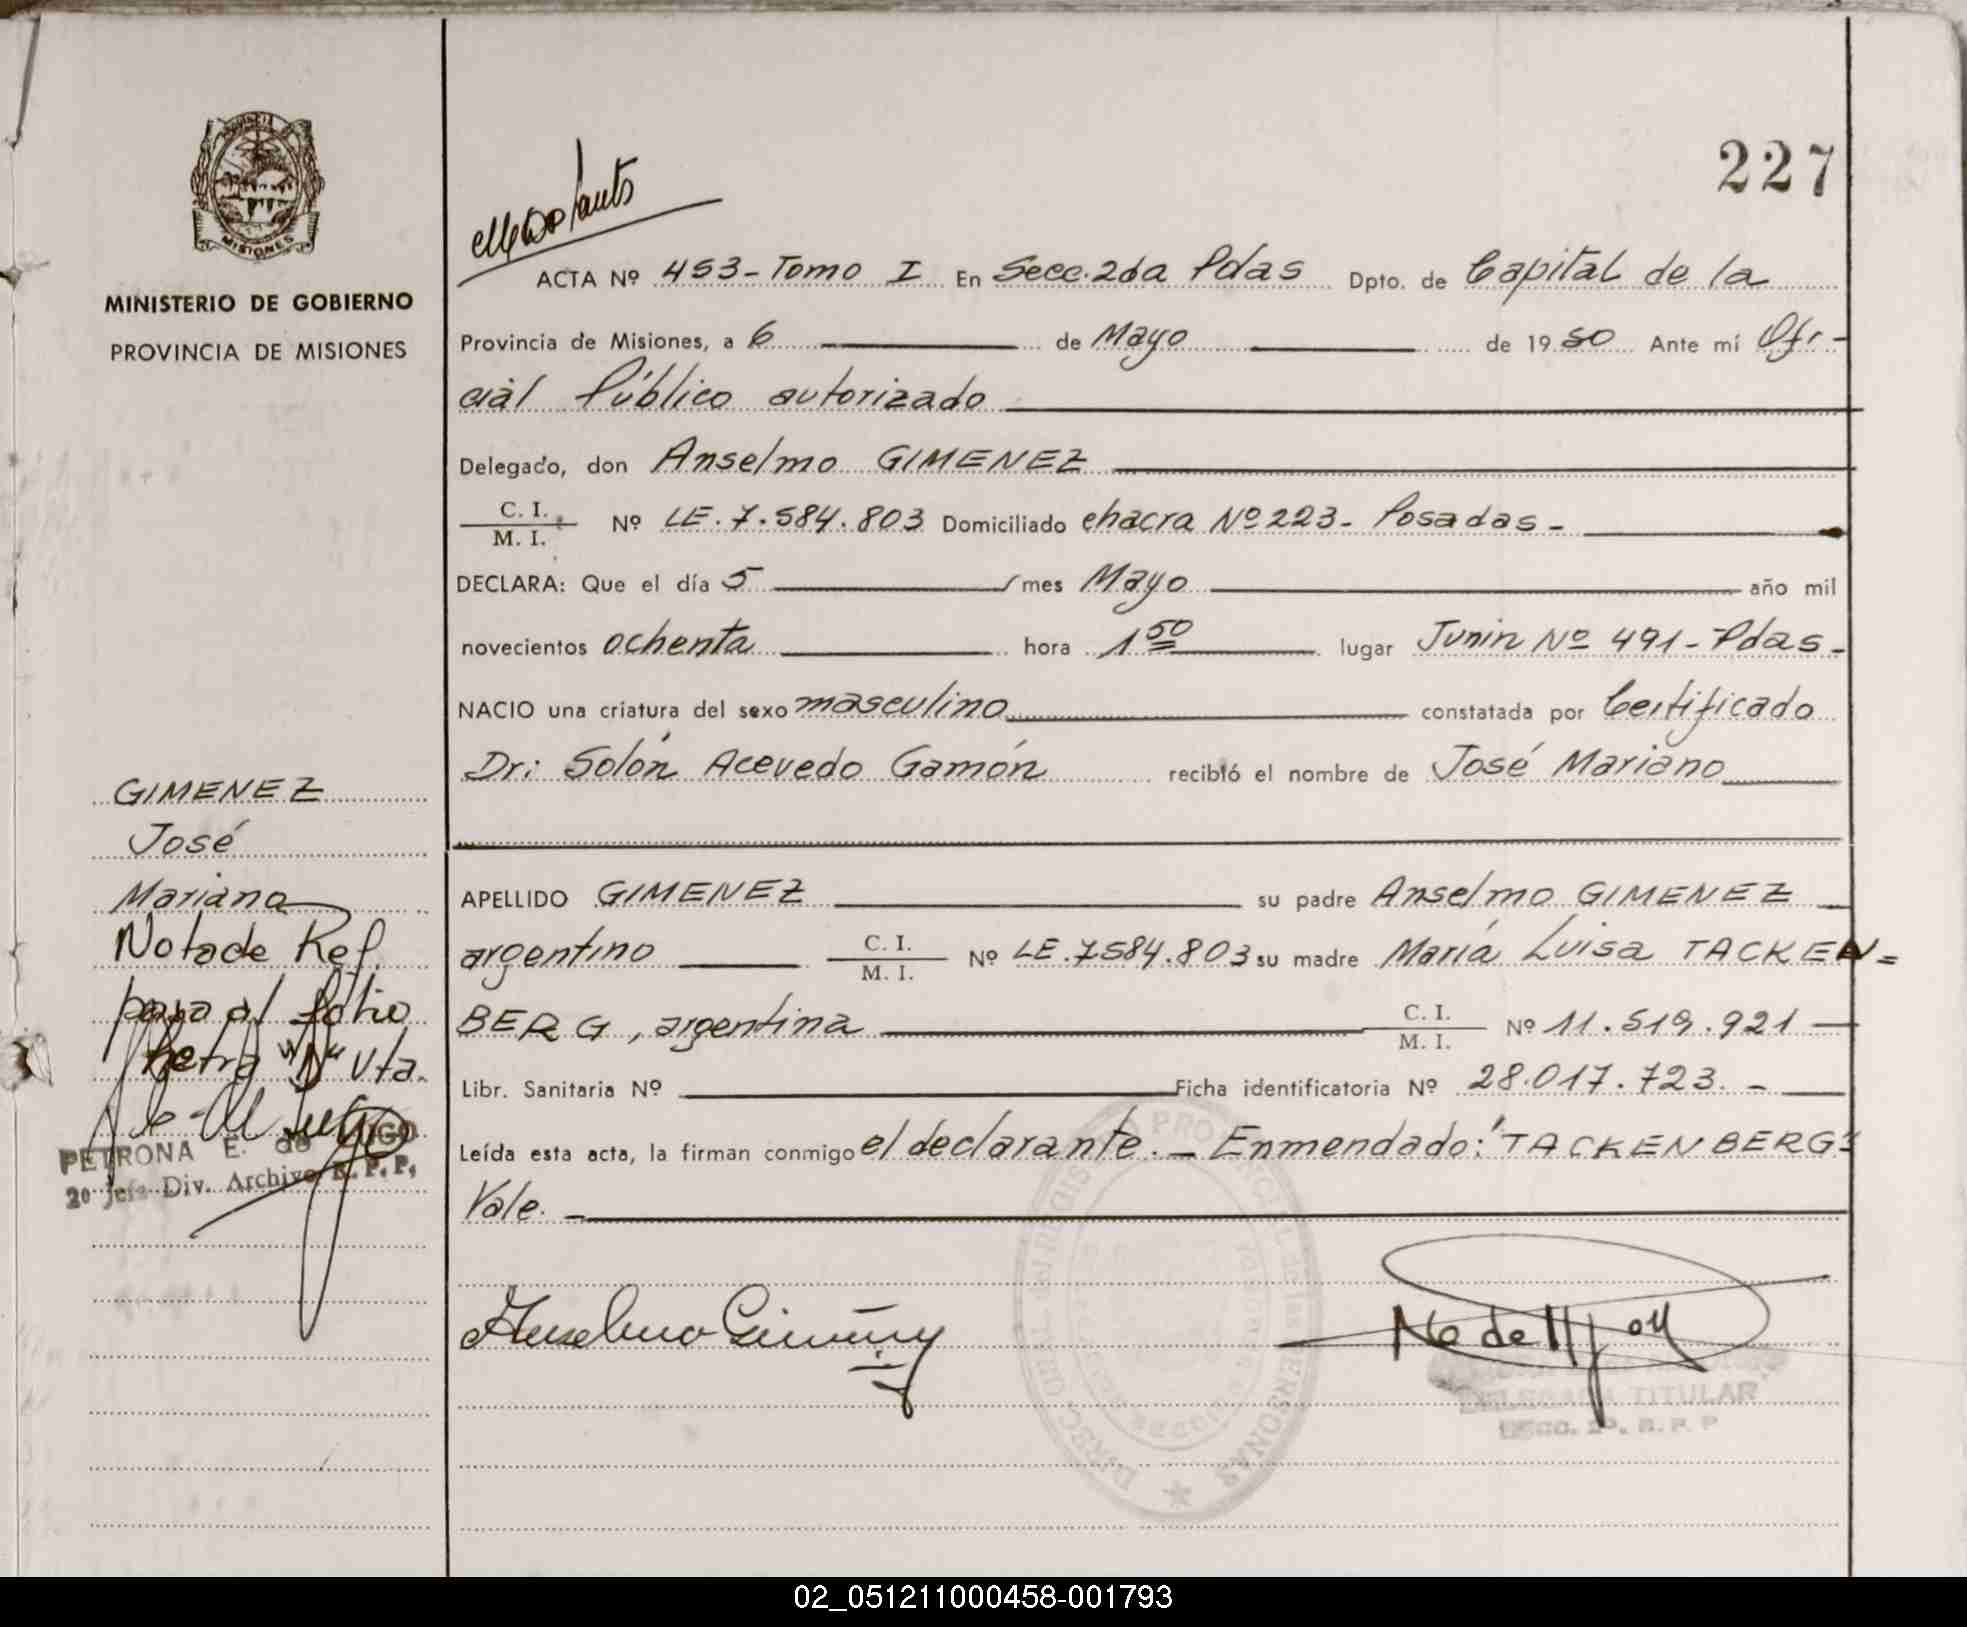 227
MISIONES
MINISTERIO DE GOBIERNO
PROVINCIA DE MISIONES
ACTA Nº 453-Tomo I En Secc. 2da Pdas Dpto. de Capital de la
Provincia de Misiones, a 6 de Mayo de 1980 Ante mí Ofi-
cial Público autorizado
Delegado, don Anselmo GIMENEZ
C. I. / M. I. Nº LE. 7.584.803 Domiciliado chacra Nº 223- Posadas-
DECLARA: Que el día 5 / mes Mayo año mil
novecientos ochenta hora 1 50 lugar Junin Nº 491-Pdas-
NACIO una criatura del sexo masculino constatada por Certificado
Dr: Solón Acevedo Gamón recibió el nombre de José Mariano
APELLIDO GIMENEZ su padre Anselmo GIMENEZ
argentino C. I. / M. I. Nº LE. 7584.803 su madre María Luisa TACKEN=
BERG, argentina C. I. / M. I. Nº 11.519.921
Libr. Sanitaria Nº Ficha identificatoria Nº 28.017.723.-
Leída esta acta, la firman conmigo el declarante.- Enmendado: "TACKENBERG"
Vale.-
GIMENEZ
José
Mariano
Nota de Ref.
pasa al folio
letra "D" Vta.
PETRONA E. de
2º Jefe Div. Archivo R. P. P.
Anselmo Gimenez
DELEGADA TITULAR
SECC. 2º. R. P. P
DIREC. GRAL. del REGISTRO PROVINCIAL de las PERSONAS
02_051211000458-001793